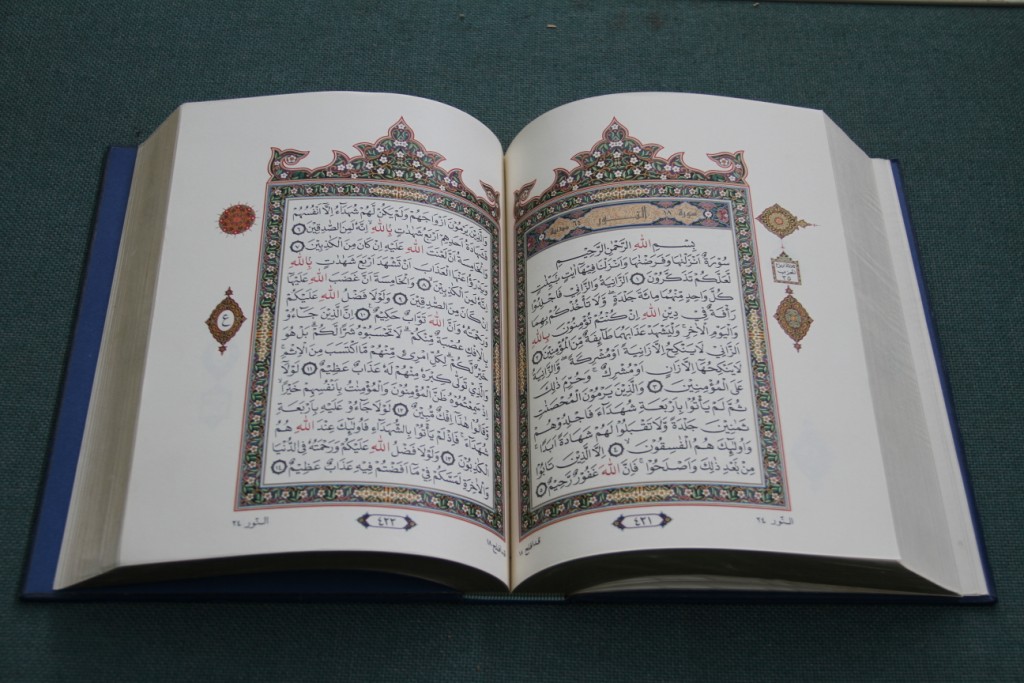 سورة النور مدنية
بِسْمِ اللهِ الرَّحْمٰنِ الرَّحِيْمِ
سُوْرَةٌ اَنْزَلْنٰهَا وَفَرَضْنٰهَا وَاَنْزَلْنَا فِيْهَآ اٰيٰتٍۢ بَيِّنٰتٍ
لَّعَلَّكُمْ تَذَكَّرُوْنَ ١ اَلزَّانِيَةُ وَالزَّانِيْ فَاجْلِدُوْا
كُلَّ وَاحِدٍ مِّنْهُمَا مِائَةَ جَلْدَةٍ ۖ وَّلَا تَأْخُذْكُمْ بِهِمَا
رَأْفَةٌ فِيْ دِيْنِ اللهِ اِنْ كُنْتُمْ تُؤْمِنُوْنَ بِاللهِ
وَالْيَوْمِ الْاٰخِرِ ۚ وَلْيَشْهَدْ عَذَابَهُمَا طَآئِفَةٌ مِّنَ الْمُؤْمِنِيْنَ ٢
اَلزَّانِيْ لَا يَنْكِحُ اِلَّا زَانِيَةً اَوْ مُشْرِكَةً ۖ وَّالزَّانِيَةُ
لَا يَنْكِحُهَآ اِلَّا زَانٍ اَوْ مُشْرِكٌ ۚ وَحُرِّمَ ذٰلِكَ
عَلَى الْمُؤْمِنِيْنَ ٣ وَالَّذِيْنَ يَرْمُوْنَ الْمُحْصَنٰتِ
ثُمَّ لَمْ يَأْتُوْا بِاَرْبَعَةِ شُهَدَآءَ فَاجْلِدُوْهُمْ
ثَمٰنِيْنَ جَلْدَةً وَّلَا تَقْبَلُوْا لَهُمْ شَهَادَةً اَبَدًا ۚ
وَاُولٰٓئِكَ هُمُ الْفٰسِقُوْنَ ٤ اِلَّا الَّذِيْنَ تَابُوْا
مِنْۢ بَعْدِ ذٰلِكَ وَاَصْلَحُوْا ۚ فَاِنَّ اللهَ غَفُوْرٌ رَّحِيْمٌ ٥
النّور ٢٤
٤٢١
قد افلح ١٨
وَالَّذِيْنَ يَرْمُوْنَ اَزْوَاجَهُمْ وَلَمْ يَكُنْ لَّهُمْ شُهَدَآءُ اِلَّآ اَنْفُسُهُمْ
فَشَهَادَةُ اَحَدِهِمْ اَرْبَعُ شَهٰدٰتٍۢ بِاللهِ ۙ اِنَّهٗ لَمِنَ الصّٰدِقِيْنَ ٦
وَالْخَامِسَةُ اَنَّ لَعْنَتَ اللهِ عَلَيْهِ اِنْ كَانَ مِنَ الْكٰذِبِيْنَ ٧
وَيَدْرَؤُا عَنْهَا الْعَذَابَ اَنْ تَشْهَدَ اَرْبَعَ شَهٰدٰتٍۢ بِاللهِ ۙ
اِنَّهٗ لَمِنَ الْكٰذِبِيْنَ ٨ وَالْخَامِسَةَ اَنَّ غَضَبَ اللهِ عَلَيْهَآ
اِنْ كَانَ مِنَ الصّٰدِقِيْنَ ٩ وَلَوْلَا فَضْلُ اللهِ عَلَيْكُمْ
وَرَحْمَتُهٗ وَاَنَّ اللهَ تَوَّابٌ حَكِيْمٌ ١٠ اِنَّ الَّذِيْنَ جَآءُوْ
بِالْاِفْكِ عُصْبَةٌ مِّنْكُمْ ۚ لَا تَحْسَبُوْهُ شَرًّا لَّكُمْ ۚ بَلْ هُوَ
خَيْرٌ لَّكُمْ ۚ لِكُلِّ امْرِئٍ مِّنْهُمْ مَّا اكْتَسَبَ مِنَ الْاِثْمِ ۚ
وَالَّذِيْ تَوَلّٰى كِبْرَهٗ مِنْهُمْ لَهٗ عَذَابٌ عَظِيْمٌ ١١ لَوْلَآ
اِذْ سَمِعْتُمُوْهُ ظَنَّ الْمُؤْمِنُوْنَ وَالْمُؤْمِنٰتُ بِاَنْفُسِهِمْ خَيْرًا ۙ
وَّقَالُوْا هٰذَآ اِفْكٌ مُّبِيْنٌ ١٢ لَوْلَا جَآءُوْ عَلَيْهِ بِاَرْبَعَةِ
شُهَدَآءَ ۚ فَاِذْ لَمْ يَأْتُوْا بِالشُّهَدَآءِ فَاُولٰٓئِكَ عِنْدَ اللهِ هُمُ
الْكٰذِبُوْنَ ١٣ وَلَوْلَا فَضْلُ اللهِ عَلَيْكُمْ وَرَحْمَتُهٗ فِي الدُّنْيَا
وَالْاٰخِرَةِ لَمَسَّكُمْ فِيْ مَآ اَفَضْتُمْ فِيْهِ عَذَابٌ عَظِيْمٌ ١٤
ع
النّور ٢٤
٤٢٢
قد افلح ١٨